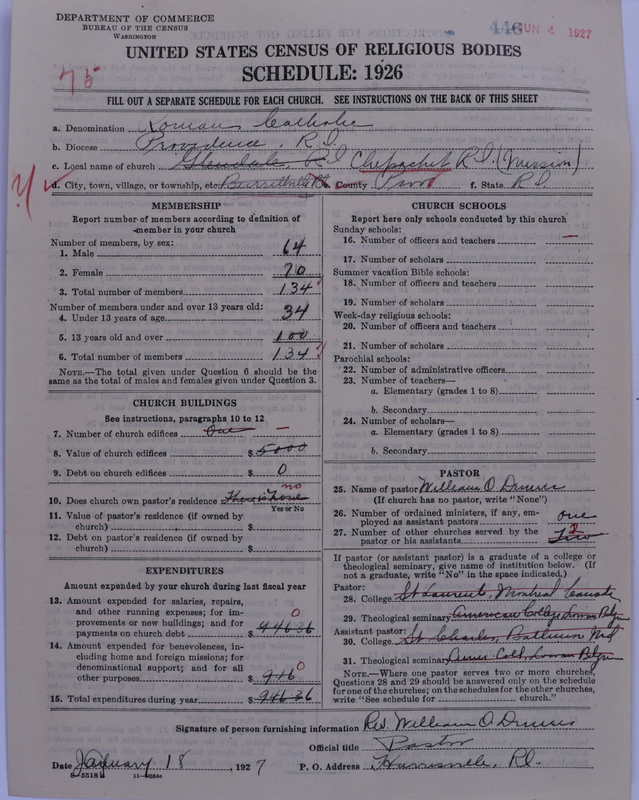 DEPARTMENT OF COMMERCE
BUREAU OF THE CENSUS
WASHINGTON
446 JUN 4 1927
UNITED STATES CENSUS OF RELIGIOUS BODIES
SCHEDULE: 1926
75
FILL OUT A SEPARATE SCHEDULE FOR EACH CHURCH. SEE INSTRUCTIONS ON THE BACK OF THIS SHEET
a. Denomination Roman Catholic
b. Diocese Providence, R.I.
c. Local name of church Glendale, R.I Chepachet R.I. (Mission)
d. City, town, village, or township, etc. Burrillville e. County Prov f. State R.I.
MEMBERSHIP
Report number of members according to definition of
member in your church
Number of members, by sex:
1. Male 64
2. Female 70
3. Total number of members 134
Number of members under and over 13 years old:
4. Under 13 years of age 34
5. 13 years old and over 100
6. Total number of members 134
NOTE.—The total given under Question 6 should be
same as the total of males and females given under Question 3.
CHURCH BUILDINGS
See instructions, paragraphs 10 to 12
7. Number of church edifices One —
8. Value of church edifices $ 5000
9. Debt on church edifices $ 0
10. Does church own pastor's residence There is none no
Yes or No
11. Value of pastor's residence (if owned by
church) $
12. Debt on pastor's residence (if owned by
church) $
EXPENDITURES
Amount expended by your church during last fiscal year
13. Amount expended for salaries, repairs,
and other running expenses; for im-
provements or new buildings; and for
payments on church debt $ 0
14. Amount expended for benevolences, in-
cluding home and foreign missions; for
denominational support; and for all
other purposes $ 0
15. Total expenditures during year $
CHURCH SCHOOLS
Report here only schools conducted by this church
Sunday schools:
16. Number of officers and teachers —
17. Number of scholars
Summer vacation Bible schools:
18. Number of officers and teachers
19. Number of scholars
Week-day religious schools:
20. Number of officers and teachers
21. Number of scholars
Parochial schools:
22. Number of administrative officers
23. Number of teachers—
a. Elementary (grades 1 to 8)
b. Secondary
24. Number of scholars—
a. Elementary (grades 1 to 8)
b. Secondary
PASTOR
25. Name of pastor William O
(If church has no pastor, write "None")
26. Number of ordained ministers, if any, em-
ployed as assistant pastors one
27. Number of other churches served by the
pastor or his assistants Two 2
If pastor (or assistant pastor) is a graduate of a college or
theological seminary, give name of institution below. (If
not a graduate, write "No" in the space indicated.)
Pastor:
28. College St Laurent, Montreal Canada
29. Theological seminary American College Louvain Belgm
Assistant pastor:
30. College St Charles, Baltimore Md
31. Theological seminary Amer Coll. Louvain Belgm
NOTE.—Where one pastor serves two or more churches,
Questions 28 and 29 should be answered only on the schedule
for one of the churches; on the schedules for the other churches,
write "See schedule for church."
Signature of person furnishing information Rev. William O
Official title Pastor
Date January 18, 1927 P. O. Address Harrisville, R.I.
8—5518